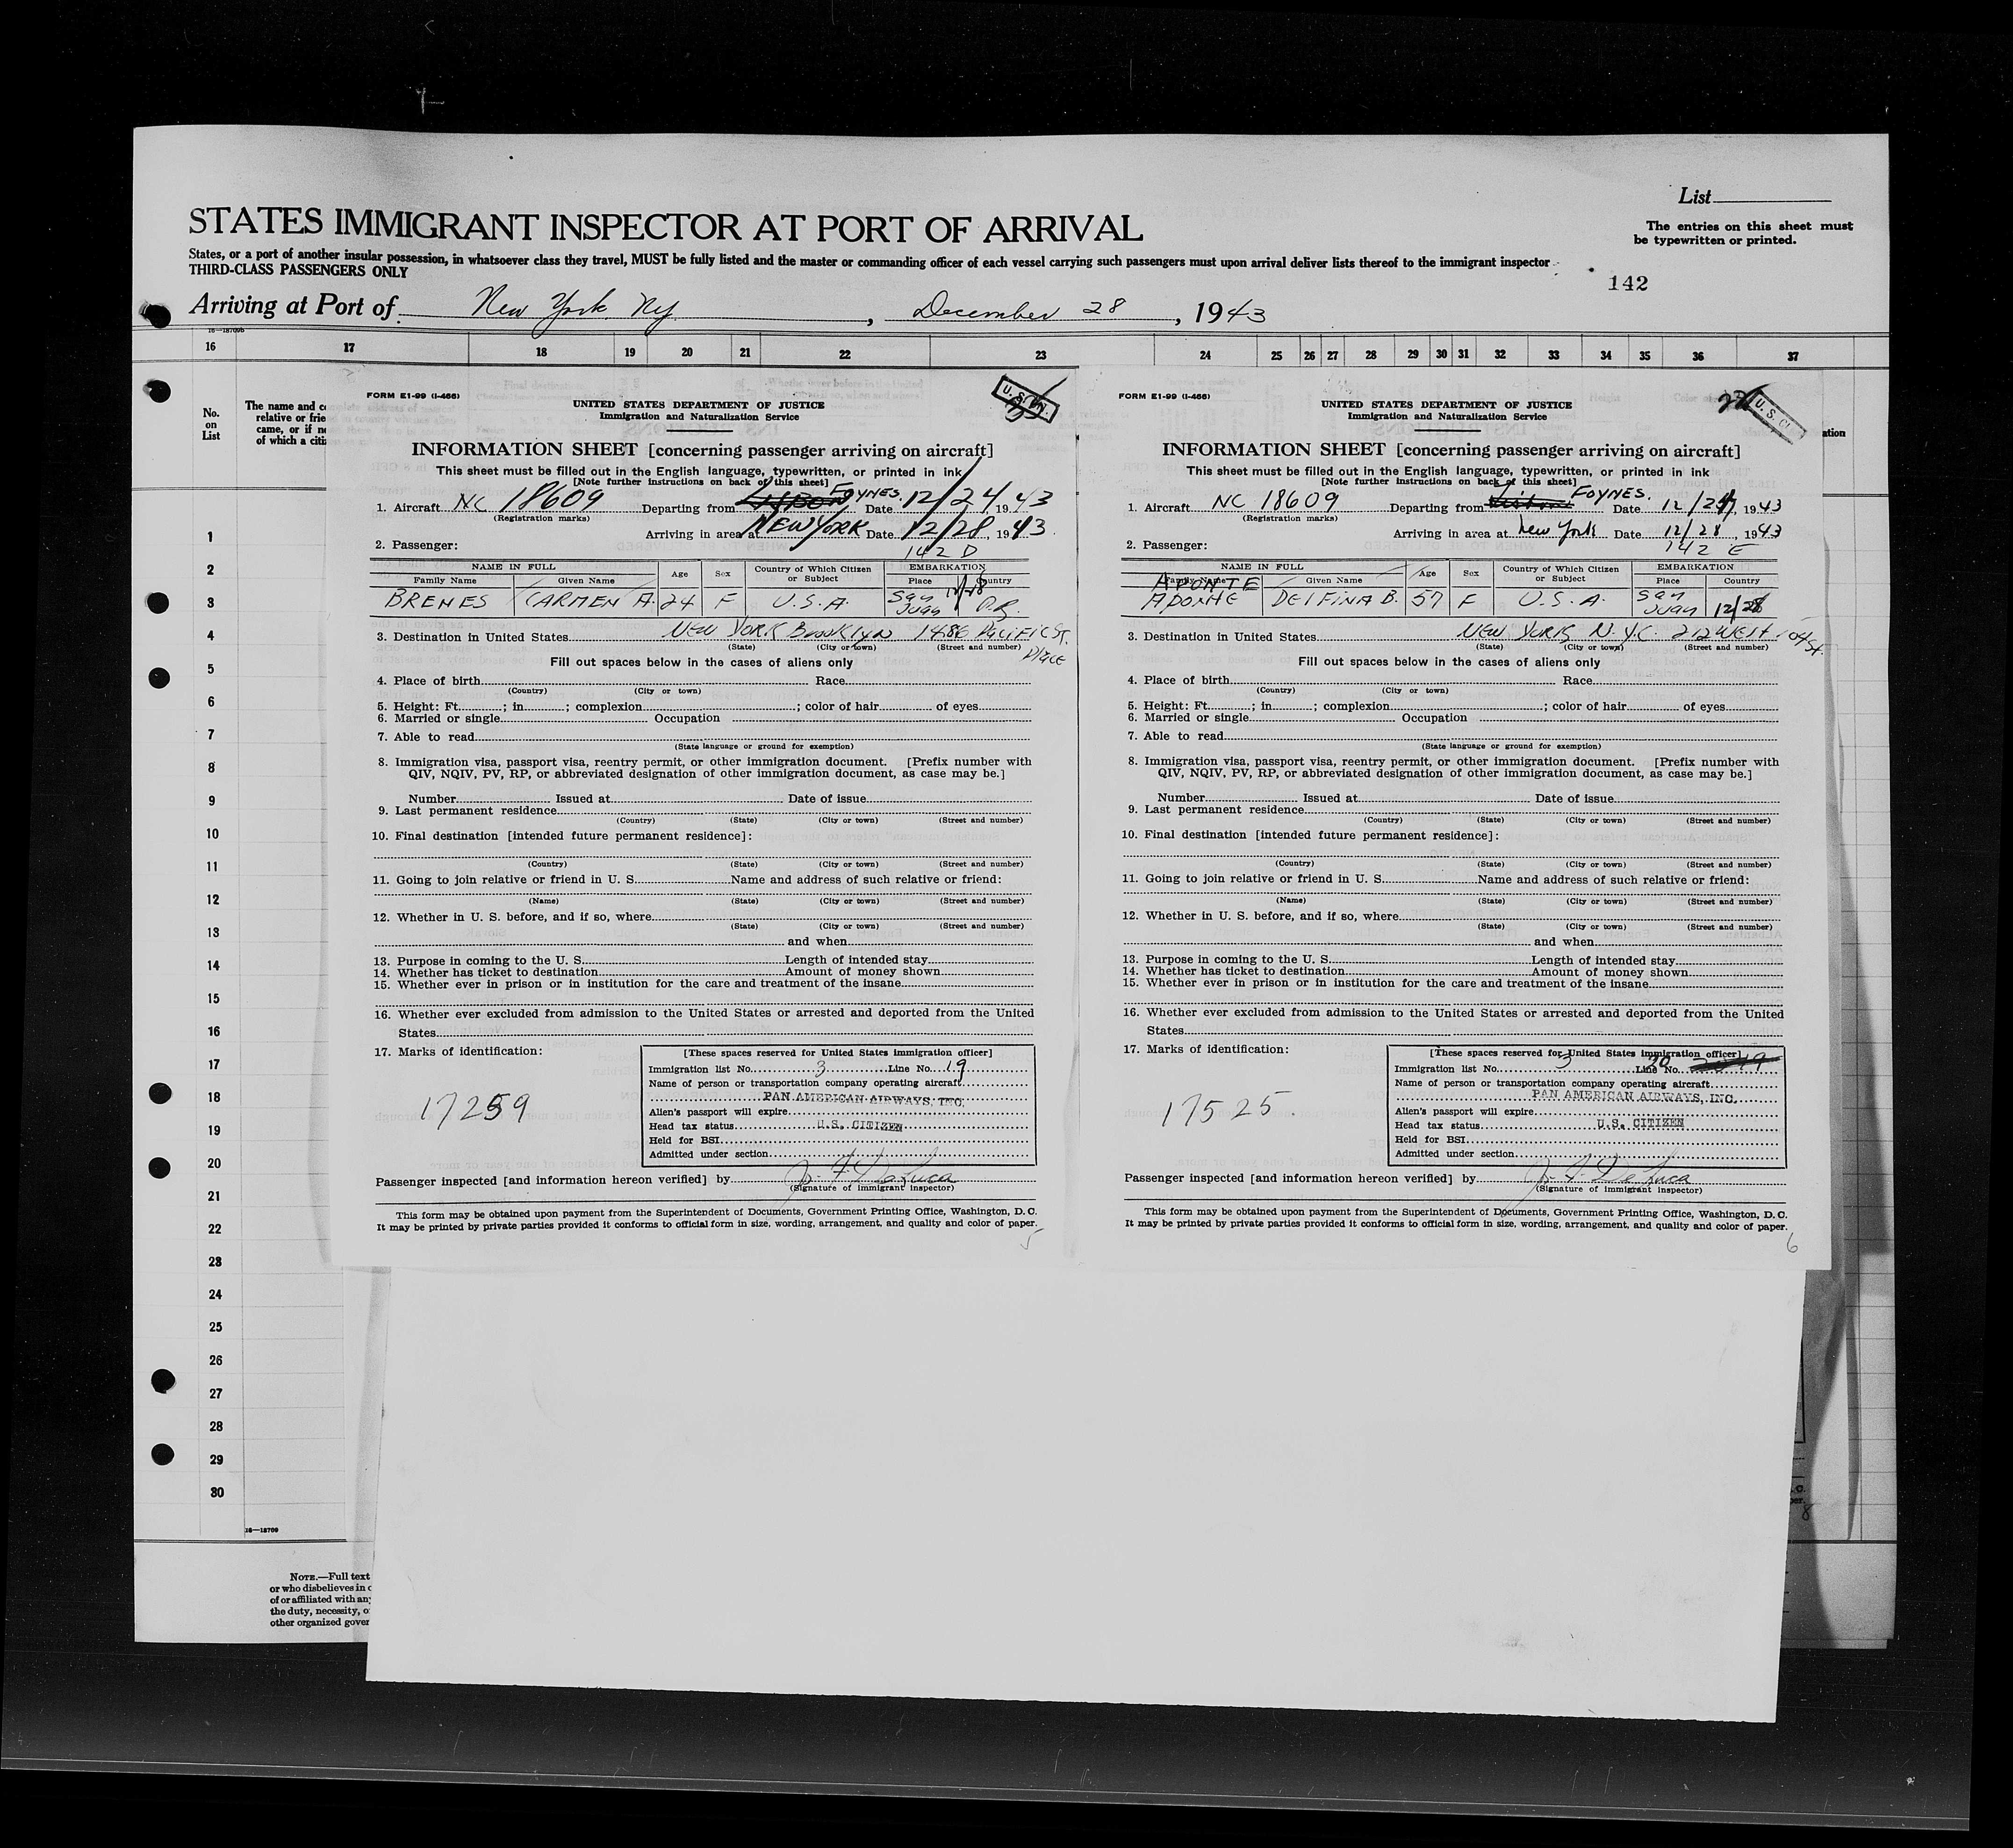 List
STATES IMMIGRANT INSPECTOR AT PORT OF ARRIVAL
The entries on this sheet must
be typewritten or printed.
States, or a port of another insular possession, in whatsoever class they travel, MUST be fully listed and the master or commanding officer of each vessel carrying such passengers must upon arrival deliver lists thereof to the immigrant inspector
THIRD-CLASS PASSENGERS ONLY
142
Arriving at Port of New York Ny, December 28, 1943
16—18709b
16 17 18 19 20 21 22 23 24 25 26 27 28 29 30 31 32 33 34 35 36 37
No.
on
List
The name and
relative or frie
came, or if
of which a citi
1
2
3
4
5
6
7
8
9
10
11
12
13
14
15
16
17
18
19
20
21
22
23
24
25
26
27
28
29
30
16—18709
NOTE.—Full text
or who disbelieves in
of or affiliated with
the duty, necessity,
other organized gover
FORM E1-99 (I-466)
UNITED STATES DEPARTMENT OF JUSTICE
Immigration and Naturalization Service
INFORMATION SHEET [concerning passenger arriving on aircraft]
This sheet must be filled out in the English language, typewritten, or printed in ink
[Note further instructions on back of this sheet]
1. Aircraft NC 18609 Departing from LISBON FOYNES. Date 12/24, 1943
(Registration marks)
Arriving in area at NEW YORK Date 12/28, 1943
2. Passenger: 142 D
NAME IN FULL Age Sex Country of Which Citizen or Subject EMBARKATION
Family Name Given Name Place Country
BRENES CARMEN A. 24 F U.S.A. San Juan P.R.
3. Destination in United States New York Brooklyn 1486 Pacific St.
Place
(State) (City or town) (Street and number)
Fill out spaces below in the cases of aliens only
4. Place of birth Race
(Country) (City or town)
5. Height: Ft. ; in ; complexion ; color of hair of eyes
6. Married or single Occupation
7. Able to read
(State language or ground for exemption)
8. Immigration visa, passport visa, reentry permit, or other immigration document. [Prefix number with
QIV, NQIV, PV, RP, or abbreviated designation of other immigration document, as case may be.]
Number Issued at Date of issue
9. Last permanent residence
(Country) (State) (City or town) (Street and number)
10. Final destination [intended future permanent residence]:
(Country) (State) (City or town) (Street and number)
11. Going to join relative or friend in U. S. Name and address of such relative or friend:
(Name) (State) (City or town) (Street and number)
12. Whether in U. S. before, and if so, where
(State) (City or town) (Street and number)
and when
13. Purpose in coming to the U. S. Length of intended stay
14. Whether has ticket to destination Amount of money shown
15. Whether ever in prison or in institution for the care and treatment of the insane
16. Whether ever excluded from admission to the United States or arrested and deported from the United
States
17. Marks of identification:
17259
[These spaces reserved for United States immigration officer]
Immigration list No. 3 Line No. 19
Name of person or transportation company operating aircraft
PAN AMERICAN AIRWAYS, INC.
Alien's passport will expire
Head tax status U.S. CITIZEN
Held for BSI
Admitted under section
Passenger inspected [and information hereon verified] by
(Signature of immigrant inspector)
This form may be obtained upon payment from the Superintendent of Documents, Government Printing Office, Washington, D. C.
It may be printed by private parties provided it conforms to official form in size, wording, arrangement, and quality and color of paper.
5
FORM E1-99 (I-466)
UNITED STATES DEPARTMENT OF JUSTICE
Immigration and Naturalization Service
INFORMATION SHEET [concerning passenger arriving on aircraft]
This sheet must be filled out in the English language, typewritten, or printed in ink
[Note further instructions on back of this sheet]
1. Aircraft NC 18609 Departing from Lisbon FOYNES. Date 12/24, 1943
(Registration marks)
Arriving in area at New York Date 12/28, 1943
2. Passenger: 142 E
NAME IN FULL Age Sex Country of Which Citizen or Subject EMBARKATION
Family Name Given Name Place Country
APONTE
APONTE DELFINA B. 57 F U.S.A. San Juan 12/28
3. Destination in United States New York N.Y.C. 212 West 104 St.
(State) (City or town) (Street and number)
Fill out spaces below in the cases of aliens only
4. Place of birth Race
(Country) (City or town)
5. Height: Ft. ; in ; complexion ; color of hair of eyes
6. Married or single Occupation
7. Able to read
(State language or ground for exemption)
8. Immigration visa, passport visa, reentry permit, or other immigration document. [Prefix number with
QIV, NQIV, PV, RP, or abbreviated designation of other immigration document, as case may be.]
Number Issued at Date of issue
9. Last permanent residence
(Country) (State) (City or town) (Street and number)
10. Final destination [intended future permanent residence]:
(Country) (State) (City or town) (Street and number)
11. Going to join relative or friend in U. S. Name and address of such relative or friend:
(Name) (State) (City or town) (Street and number)
12. Whether in U. S. before, and if so, where
(State) (City or town) (Street and number)
and when
13. Purpose in coming to the U. S. Length of intended stay
14. Whether has ticket to destination Amount of money shown
15. Whether ever in prison or in institution for the care and treatment of the insane
16. Whether ever excluded from admission to the United States or arrested and deported from the United
States
17. Marks of identification:
17525.
[These spaces reserved for United States immigration officer]
Immigration list No. 3 Line No. 20
Name of person or transportation company operating aircraft
PAN AMERICAN AIRWAYS, INC.
Alien's passport will expire
Head tax status U.S. CITIZEN
Held for BSI
Admitted under section
Passenger inspected [and information hereon verified] by
(Signature of immigrant inspector)
This form may be obtained upon payment from the Superintendent of Documents, Government Printing Office, Washington, D. C.
It may be printed by private parties provided it conforms to official form in size, wording, arrangement, and quality and color of paper.
6
8